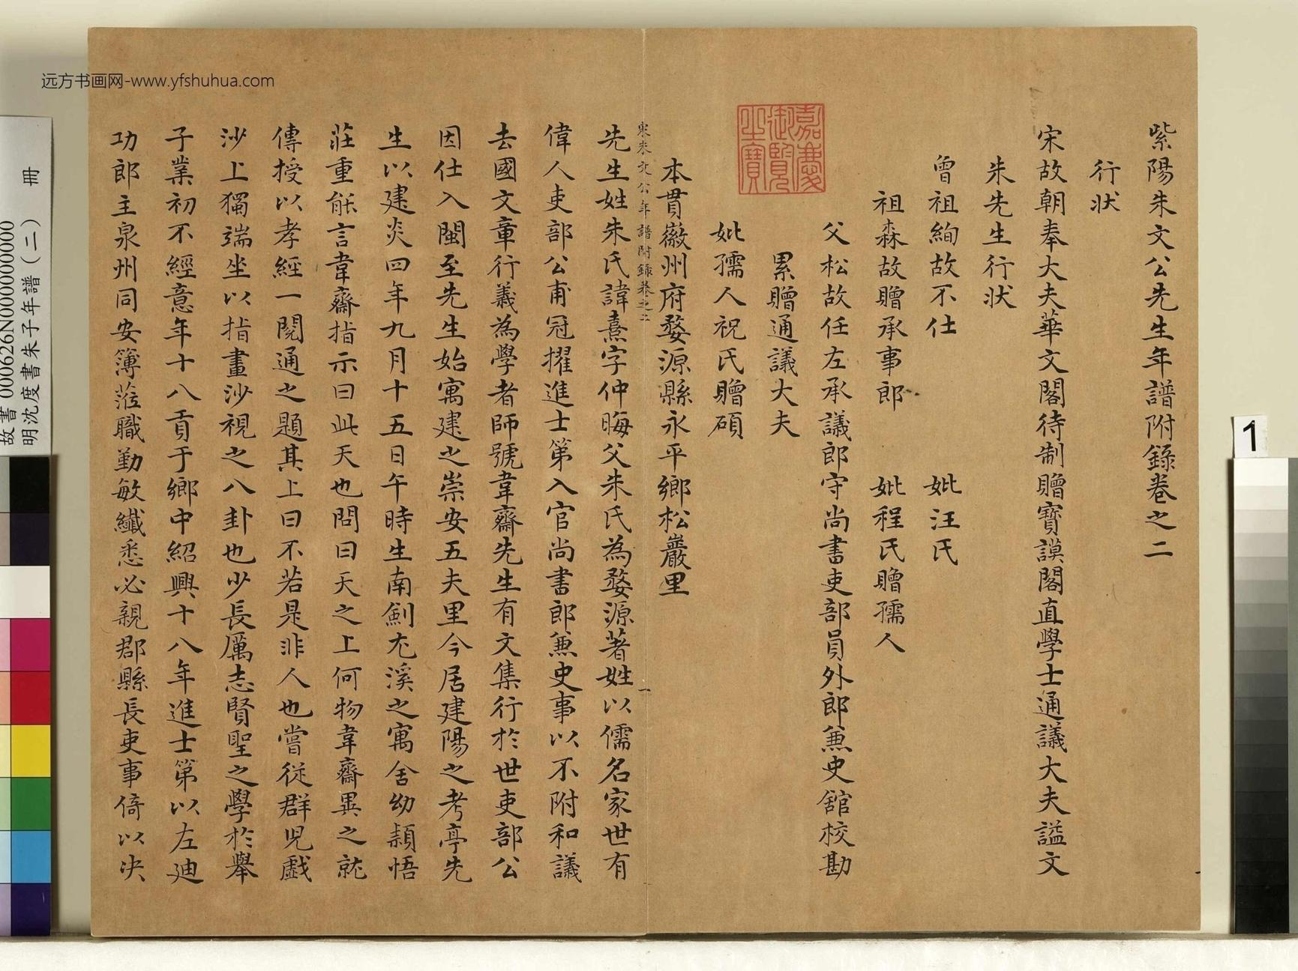 紫陽朱文公先生年譜附錄卷之二
行狀
宋故朝奉大夫華文閣待制贈寶謨閣直學士通議大夫謚文
朱先生行狀
曾祖絢故不仕 妣汪氏
祖森故贈承事郎 妣程氏贈孺人
父松故任左承議郎守尚書吏部員外郎兼史館校勘
累贈通議大夫
妣孺人祝氏贈碩
本貫徽州府婺源縣永平鄉松巖里
嘉慶御覽之寶
朱文公年譜附錄卷之二
一
先生姓朱氏諱熹字仲晦父朱氏為婺源著姓以儒名家世有
偉人吏部公甫冠擢進士第入官尚書郎兼史事以不附和議
去國文章行義為學者師號韋齋先生有文集行於世吏部公
因仕入閩至先生始寓建之崇安五夫里今居建陽之考亭先
生以建炎四年九月十五日午時生南劍尤溪之寓舍幼穎悟
莊重能言韋齋指示曰此天也問曰天之上何物韋齋異之就
傳授以孝經一閱通之題其上曰不若是非人也嘗從群兒戲
沙上獨端坐以指畫沙視之八卦也少長厲志賢聖之學於舉
子業初不經意年十八貢于鄉中紹興十八年進士第以左迪
功郎主泉州同安簿蒞職勤敏纖悉必親郡縣長吏事倚以決
远方书画网-www.yfshuhua.com
故書 000626N000000000
明沈度書朱子年譜(二) 冊
1